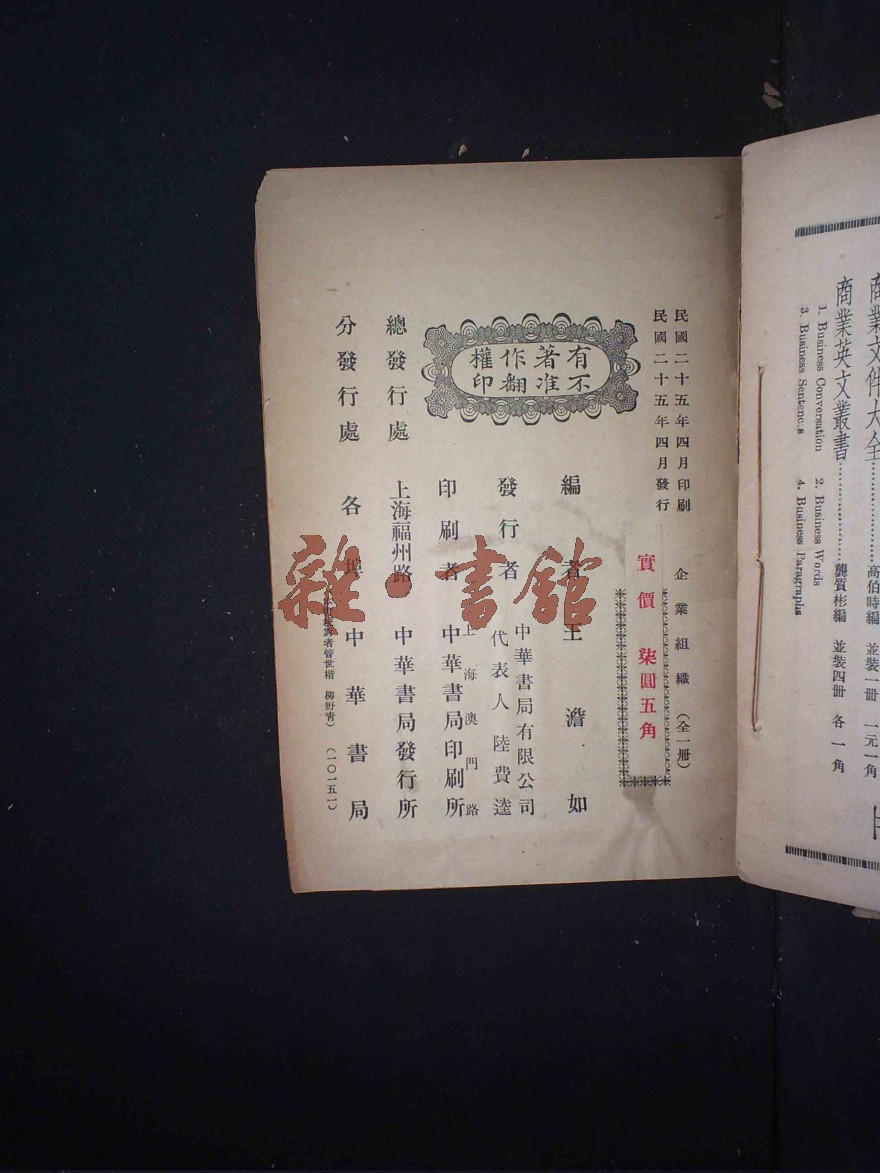 民國二十五年四月印刷
民國二十五年四月發行
企業組織（全一册）
實價 柒圓五角
有著作權
不准翻印
編者 王澹如
發行者 中華書局有限公司
代表人 陸費逵
印刷者 上海澳門路
中華書局印刷所
總發行處 上海福州路 中華書局發行所
分發行處 各埠 中華書局
者管世楷 柳野青）（一〇一五一）
雜·書館
商業文件大全 高伯時編 並裝一册 一元一角
商業英文叢書 龔質彬編 並裝四册 各一角
1. Business Conversation 2. Business Words
3. Business Sentences 4. Business Paragraphs